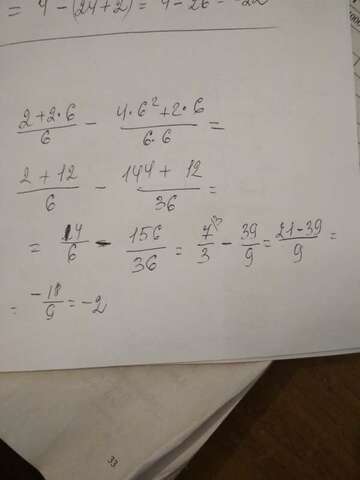 = 4 - (24+2) = 4 - 26 = -22
2+2·6/6 - 4·6²+2·6/6·6 =
2+12/6 - 144+12/36 =
= 14/6 - 156/36 = 7/3 - 39/9 = 21-39/9 =
= -18/9 = -2
33